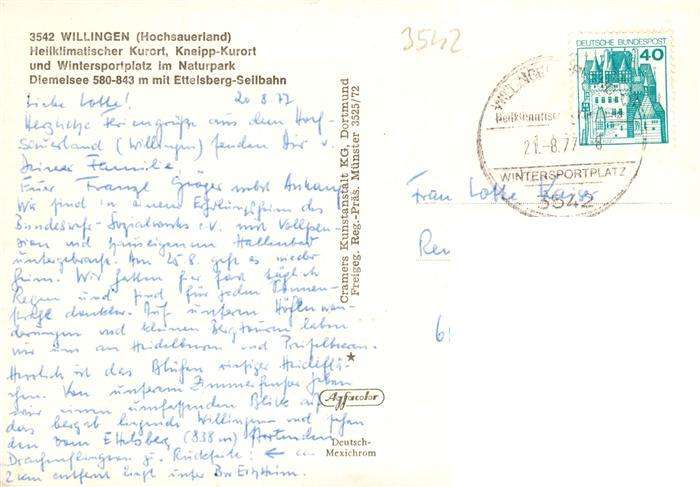 3542 WILLINGEN (Hochsauerland)
Heilklimatischer Kurort, Kneipp-Kurort
und Wintersportplatz im Naturpark
Diemelsee 580-843 m mit Ettelsberg-Seilbahn
Liebe Lotte! 20.8.77
Herzliche Feriengrüße aus dem Hoch-
Sauerland (Willingen) senden Dir u.
Deiner Familie
Euer Franzl Gröger nebst Anhang
Wir sind in einem Erholungsheim des
Bundeswehr-Sozialwerks e.V. mit Vollpen-
sion und hauseigenem Hallenbad
untergebracht. Am 25.8. geht es wieder
heim. Wir hatten hier fast täglich
Regen und sind für jeden Sonnen-
strahl dankbar. Auf unseren
und kleinen Bergtouren laben
wir uns an Heidelbeeren und Preißelbeeren.
Herrlich ist das Blühen riesiger Heideflä-
chen. Von unserem Zimmerfenster haben
wir einen umfassenden Blick auf
das bergab liegende Willingen und sehen
den vom Ettelsberg (838 m) startenden
Drachenfliegern z. Rückseite: ←
2 km entfernt liegt unser
Cramers Kunstanstalt KG, Dortmund
Freigeg. Reg.-Präs. Münster 3525/72
Agfacolor
Deutsch-
Mexichrom
3542
DEUTSCHE BUNDESPOST
40
WILLINGEN
Heilklimatisc
21.-8.77
WINTERSPORTPLATZ
3542
Frau Lotte Kaiser
Re
6